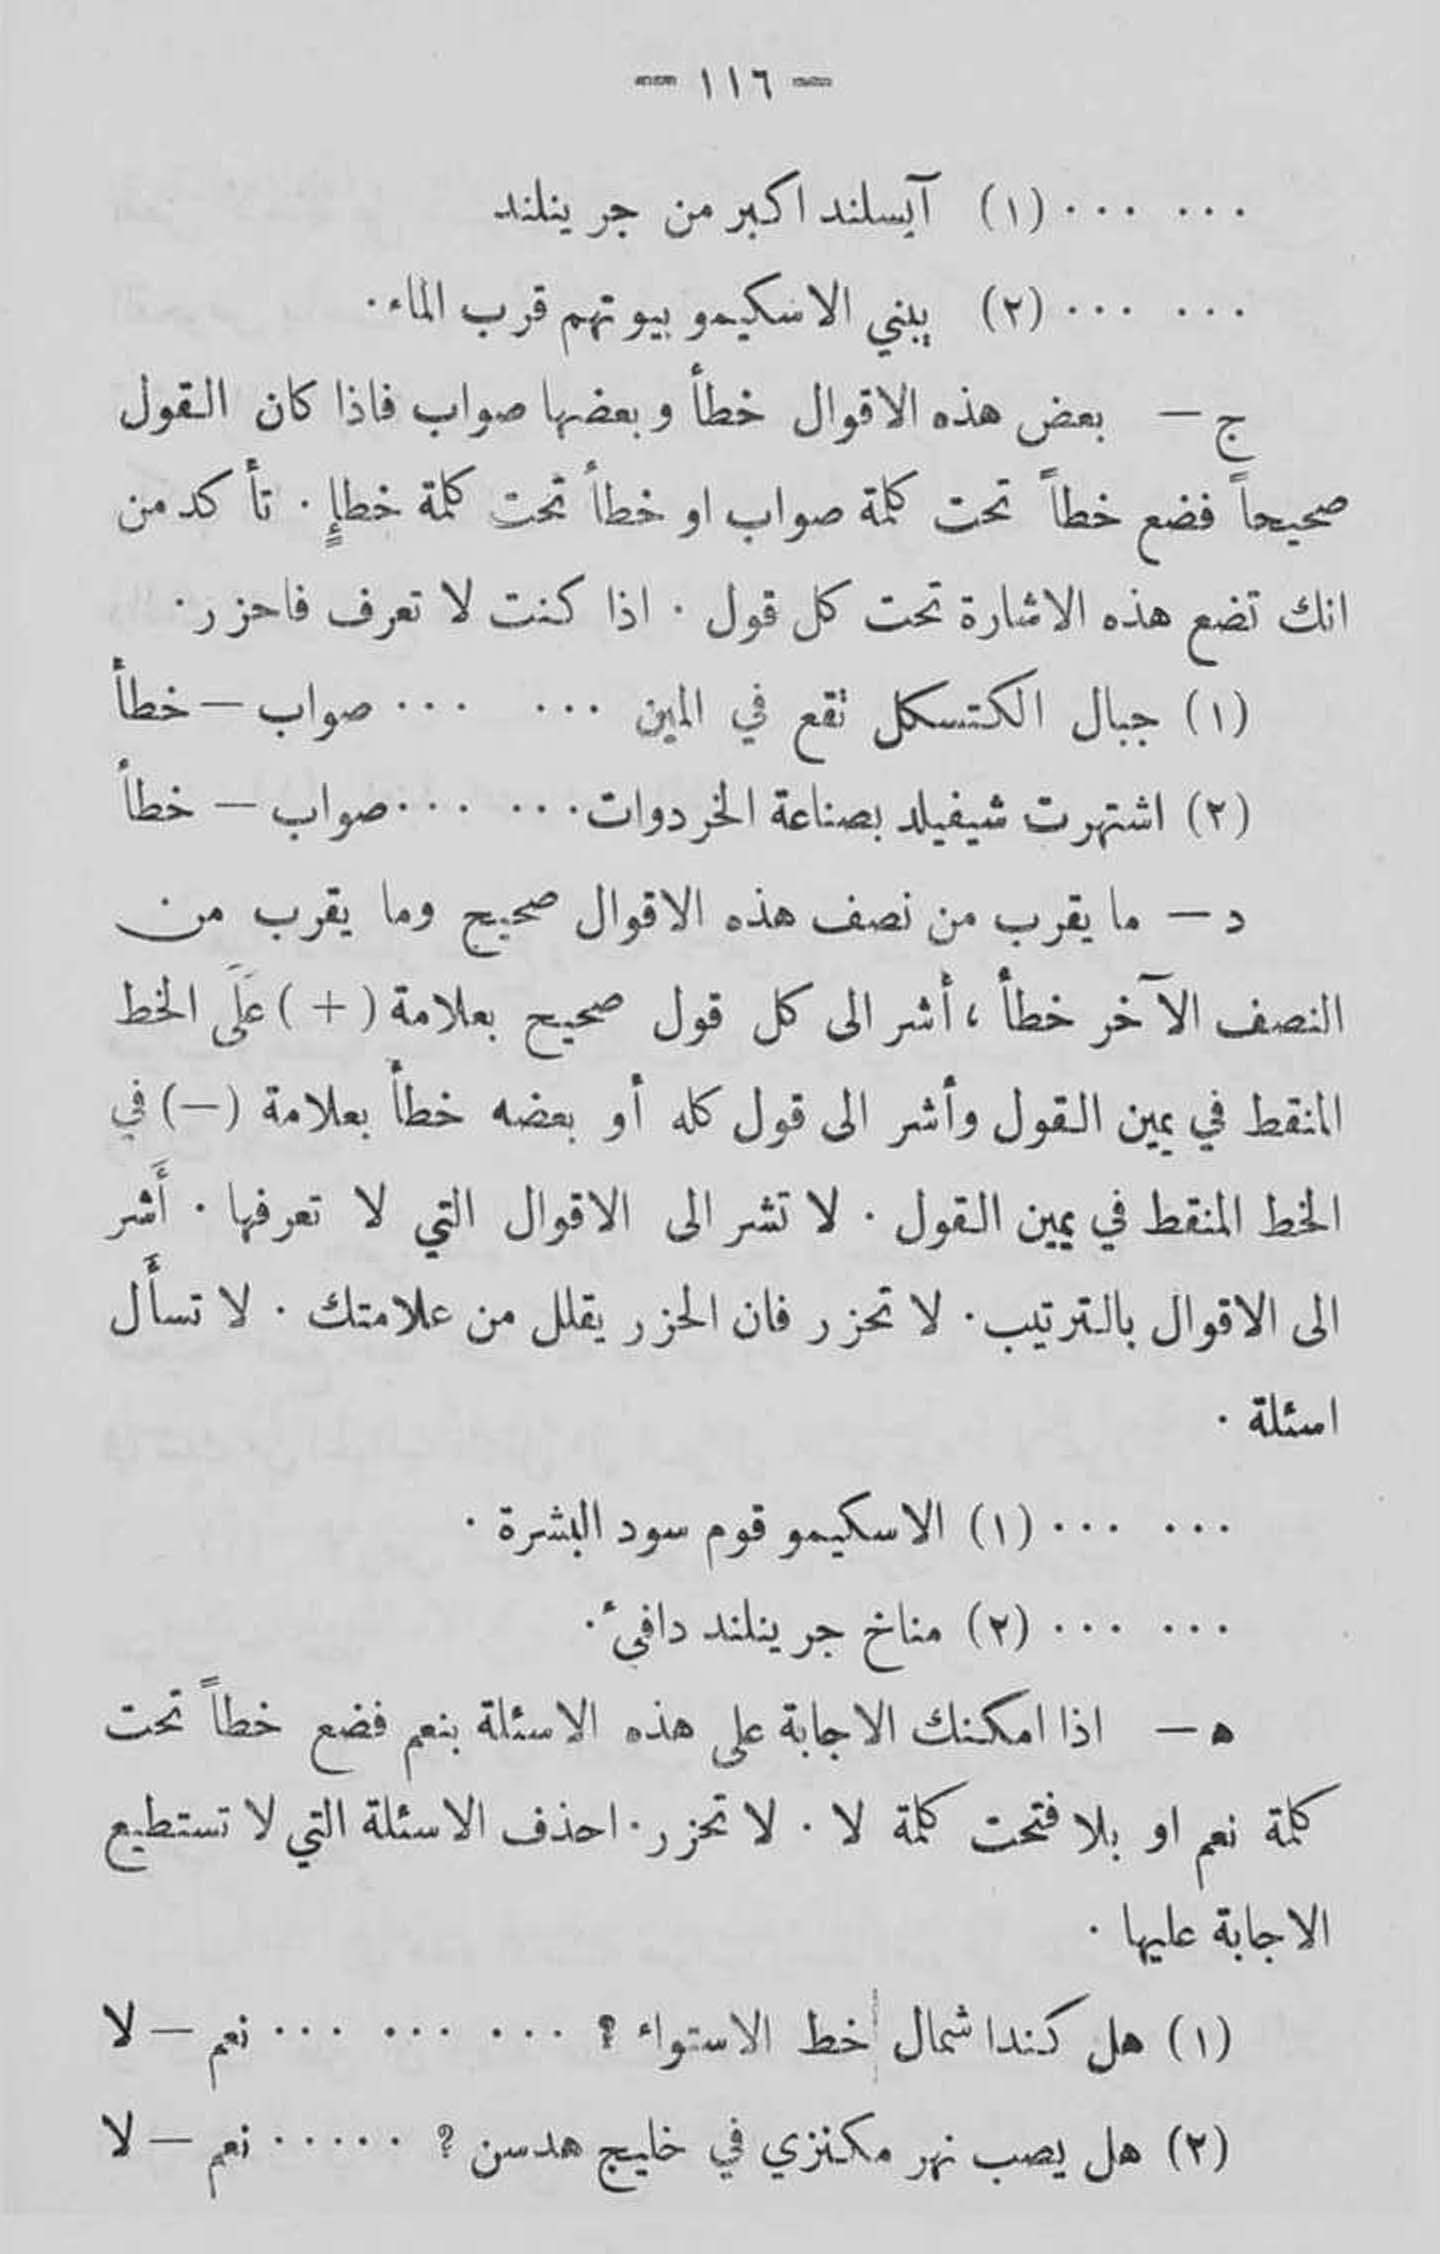 — ١١٦ —
... ... (١) آيسلند اكبر من جرينلند
... ... (٢) يبني الاسكيمو بيوتهم قرب الماء.
ج — بعض هذه الاقوال خطأ وبعضها صواب فاذا كان القول
صحيحاً فضع خطاً تحت كلمة صواب او خطأ تحت كلمة خطإٍ. تأكد من
انك تضع هذه الاشارة تحت كل قول. اذا كنت لا تعرف فاحزر.
(١) جبال الكتسكل تقع في المين ... ... صواب — خطأ
(٢) اشتهرت شيفيلد بصناعة الخردوات... ...صواب — خطأ
د — ما يقرب من نصف هذه الاقوال صحيح وما يقرب من
النصف الآخر خطأ ، أشر الى كل قول صحيح بعلامة (+) عَلَى الخط
المنقط في يمين القول وأشر الى قول كله أو بعضه خطأ بعلامة (—) في
الخط المنقط في يمين القول. لا تشر الى الاقوال التي لا تعرفها. أَشر
الى الاقوال بالترتيب. لا تحزر فان الحزر يقلل من علامتك. لا تسأَل
اسئلة.
... ... (١) الاسكيمو قوم سود البشرة.
... ... (٢) مناخ جرينلند دافئ.
ه — اذا امكنك الاجابة على هذه الاسئلة بنعم فضع خطاً تحت
كلمة نعم او بلا فتحت كلمة لا. لا تحزر. احذف الاسئلة التي لا تستطيع
الاجابة عليها.
(١) هل كندا شمال خط الاستواء ؟ ... ... ... نعم — لا
(٢) هل يصب نهر مكنزي في خليج هدسن ؟ ..... نعم — لا